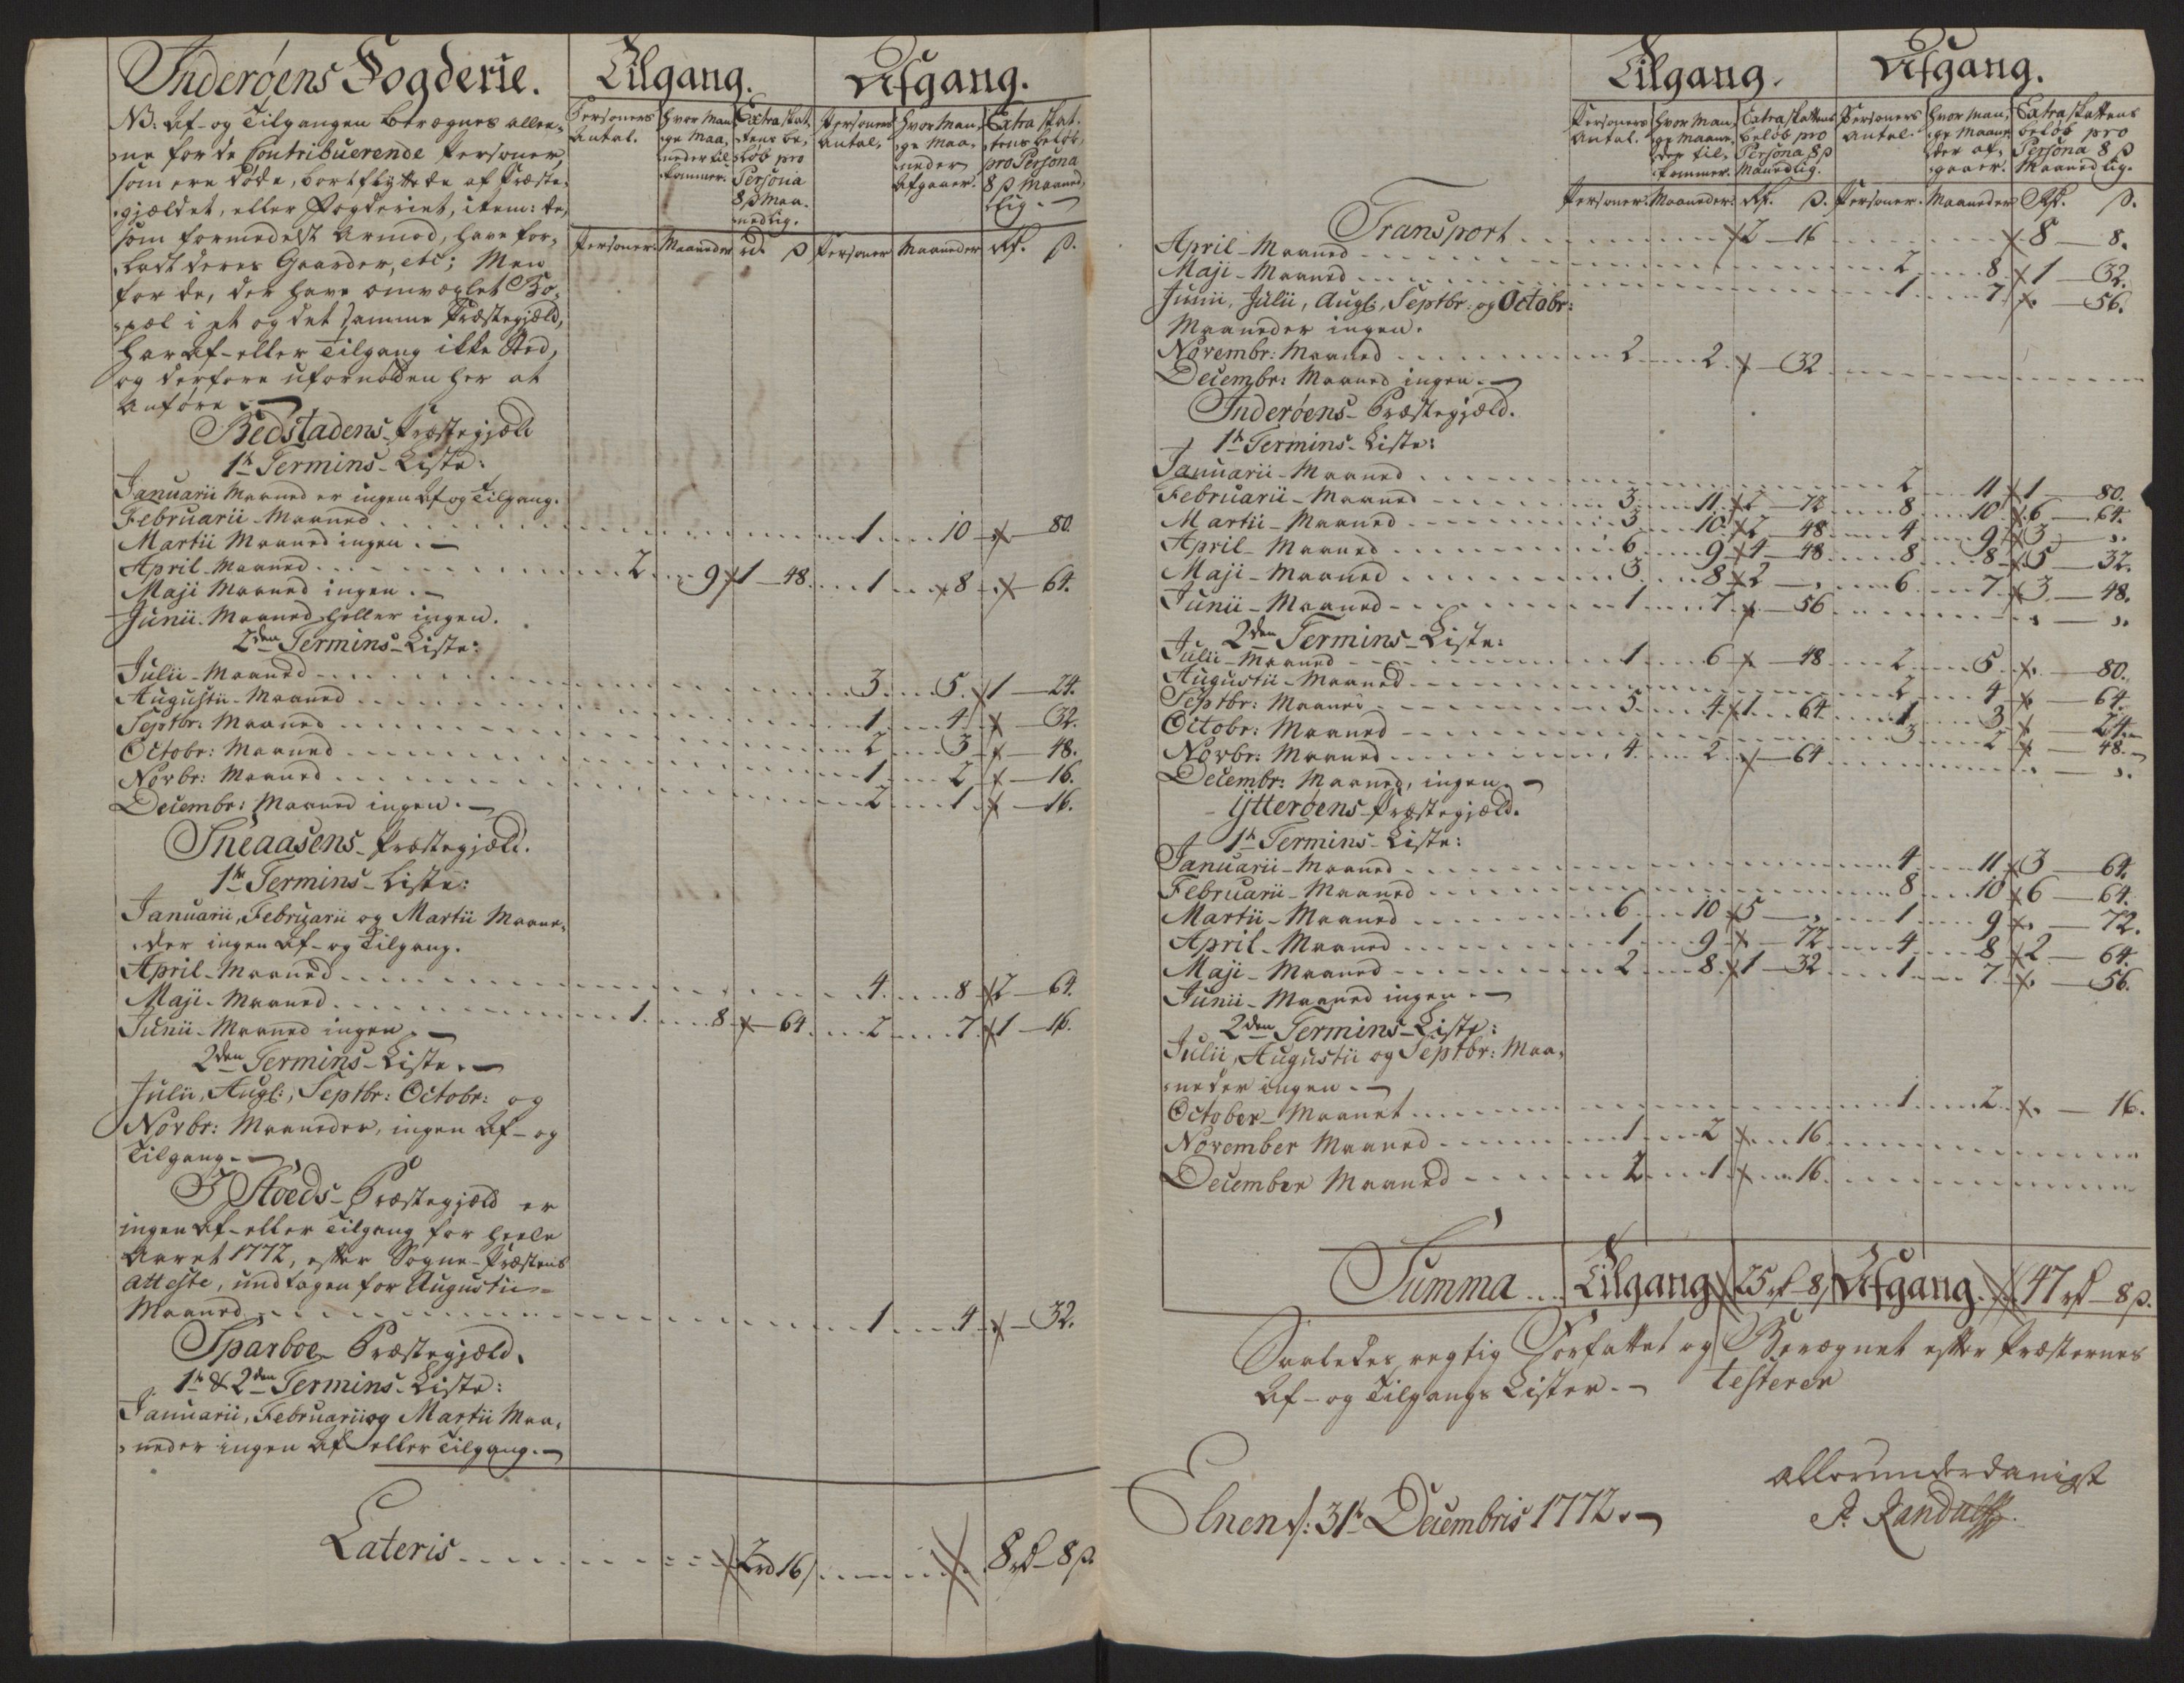 Inderøens Fogderie.
Tilgang.
Afgang.
NB: Af- og Tilgangen beregnes allee-
ne for de Contribuerende Personer,
som ere døde, bortflyttede af Præste-
gjældet, eller Fogderiet, item: de,
som formedelst Armod, have for-
ladt deres Gaarder, etc; Men
for de, der have omvexlet Bo-
pæl i et og det samme Præstegjæld,
har Af- eller Tilgang ikke Sted,
og derfore ufornøden her at
Anføre.
Personers Antal. | Hvor man- ge Maa- neder til- kommer. | Extra Skat- tens be- løb pro Persona 8 β Maa- nedlig. | Personers Antal. | Hvor Man- ge Maa- neder Afgaaer. | Extra Skat- tens beløb pro Persona 8 β Maaned- lig.
Personer. Maaneder rd. β Personer Maaneder Rd. β.
Bedstadens Præstegjæld
1te Termins-Liste:
Januarii Maaned er ingen Af og Tilgang.
Februarii Maaned . . . 1 . . 10 — 80.
Martii Maaned ingen.
April-Maaned . . . 2 . . 9 1 — 48. . . 1 . . 8 — 64.
Maji Maaned ingen.
Junii-Maaned heller ingen.
2den Termins-Liste:
Julii-Maaned . . . 3 . . 5. 1 — 24.
Augustii-Maaned . . . 1 . . 4 — 32.
Septbr: Maaned . . . 2 . . 3 — 48.
Octobr: Maaned . . . 1 . . 2 — 16.
Novbr: Maaned . . . 2 . . 1 — 16.
Decembr: Maaned ingen.
Sneaasens Præstegjæld.
1te Termins-Liste:
Januarii, Februarii og Martii Maane-
der ingen Af- og Tilgang.
April-Maaned . . . 4. . . 8 2 — 64.
Maji-Maaned . . . 1. . . 8 — 64. . . 2 . . 7. 1 — 16.
Junii-Maaned ingen.
2den Termins-Liste.
Julii, Augl:, Septbr: Octobr: og
Novbr: Maaneder, ingen Af- og
Tilgang.
I Støeds-Præstegjæld er
ingen Af- eller Tilgang for heele
Aaret 1772, efter Sogne-Præstens
Atteste, undtagen for Augustii-
Maaned . . . 1 . . 4 — 32.
Sparboe-Præstegjæld.
1te & 2den Termins-Liste:
Januarii, Februarii og Martii Maa-
neder ingen Af eller Tilgang.
Lateris . . . 2 rd 16 β . . . 8 rd — 8 β.
Tilgang.
Afgang.
Personers Antal. | Hvor Man- ge Maane- der til- kommer. | Extra Skattens beløb pro Persona 8 β Maanedlig. | Personers Antal. | Hvor Man- ge Maane- der af- gaaer. | Extra Skattens beløb pro Persona 8 β Maanedlig.
Personer. Maaneder. Rd. β. Personer. Maaneder Rd. β.
Transport . . . 2 — 16 . . . 8 — 8.
April-Maaned . . . 2 . . 8 1 — 32.
Maji-Maaned . . . 1 . . 7 — 56.
Junii, Julii, Augl:, Septbr. og Octobr:
Maaneder ingen.
Novembr: Maaned . . . 2 . . 2. — 32
Decembr: Maaned ingen.
Inderøens-Præstegjæld.
1te Termins-Liste:
Januarii-Maaned . . . 2 . . 11 1 — 80.
Februarii-Maaned . . . 3 . . 11. 2 — 72 . . 8 . . 10 6 — 64.
Martii-Maaned . . . 3 . . 10. 2 — 48 . . 4 . . 9 3 — ,,
April-Maaned . . . 6 . . 9 4 — 48 . . 8 . . 8 5 — 32.
Maji-Maaned . . . 3 . . 8 2 — , . . 6 . . 7. 3 — 48.
Junii-Maaned . . . 1 . . 7. — 56 . . . — ,,
2den Termins-Liste:
Julii-Maaned . . . 1 . . 6 — 48 . . 2 . . 5 — 80.
Augustii-Maaned . . . 2 . . 4 — 64.
Septbr: Maaned . . . 5 . . 4 1 . . 64 . . 1 . . 3 24.
Octobr: Maaned . . . 3 . . 2 — 48.
Novbr: Maaned . . . 4 . . 2 — 64 . . . — ,,
Decembr: Maaned, ingen.
Ytterøens-Præstegjæld.
1te Termins-Liste:
Januarii-Maaned . . . 4 . . 11 3 — 64.
Februarii-Maaned . . . 8 . . 10 6 — 64.
Martii-Maaned . . . 6 . . 10 5 — , . . 1 . . 9 — 72.
April-Maaned . . . 1 . . 9 — 72 . . 4 . . 8 2 — 64.
Maji-Maaned . . . 2 . . 8. 1 — 32 . . 1 . . 7. — 56.
Junii-Maaned ingen.
2den Termins-Liste:
Julii, Augustii og Septbr: Maa-
neder ingen.
October-Maanet . . . 1 . . 2 — 16.
November Maaned . . . 1 . . 2 . . 16
December Maaned . . . 2 . . 1 . . 16
Summa . . . Tilgang 25 rd — 8 β Afgang. 47 rd — 8 β.
Saaledes rigtig Forfattet og Beregnet efter Præsternes
Af- og Tilgangs Lister. Testerer
Elnen d: 31te Decembris 1772.
Allerunderdanigst
P. Randulff.